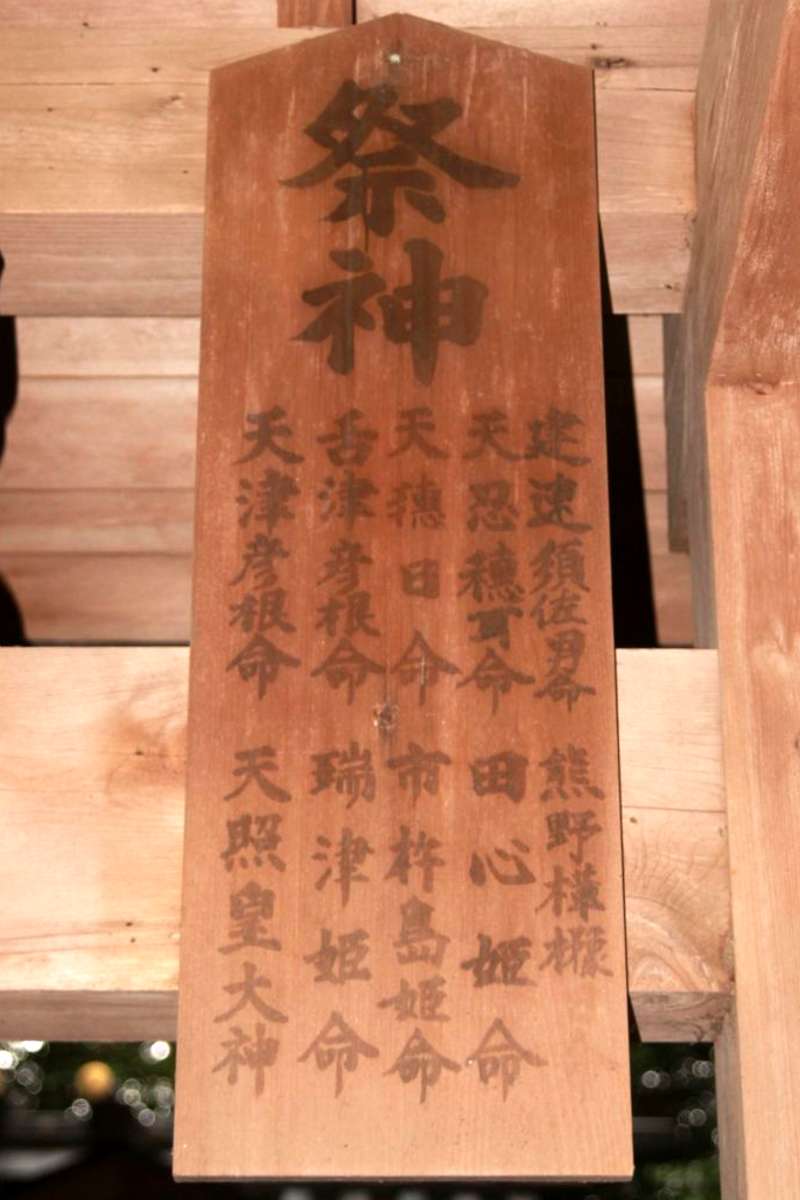 祭神
建速須佐男命
天忍穂耳命
天穂日命
舌津彦根命
天津彦根命
熊野樟樟
田心姫命
市杵島姫命
瑞津姫命
天照皇大神